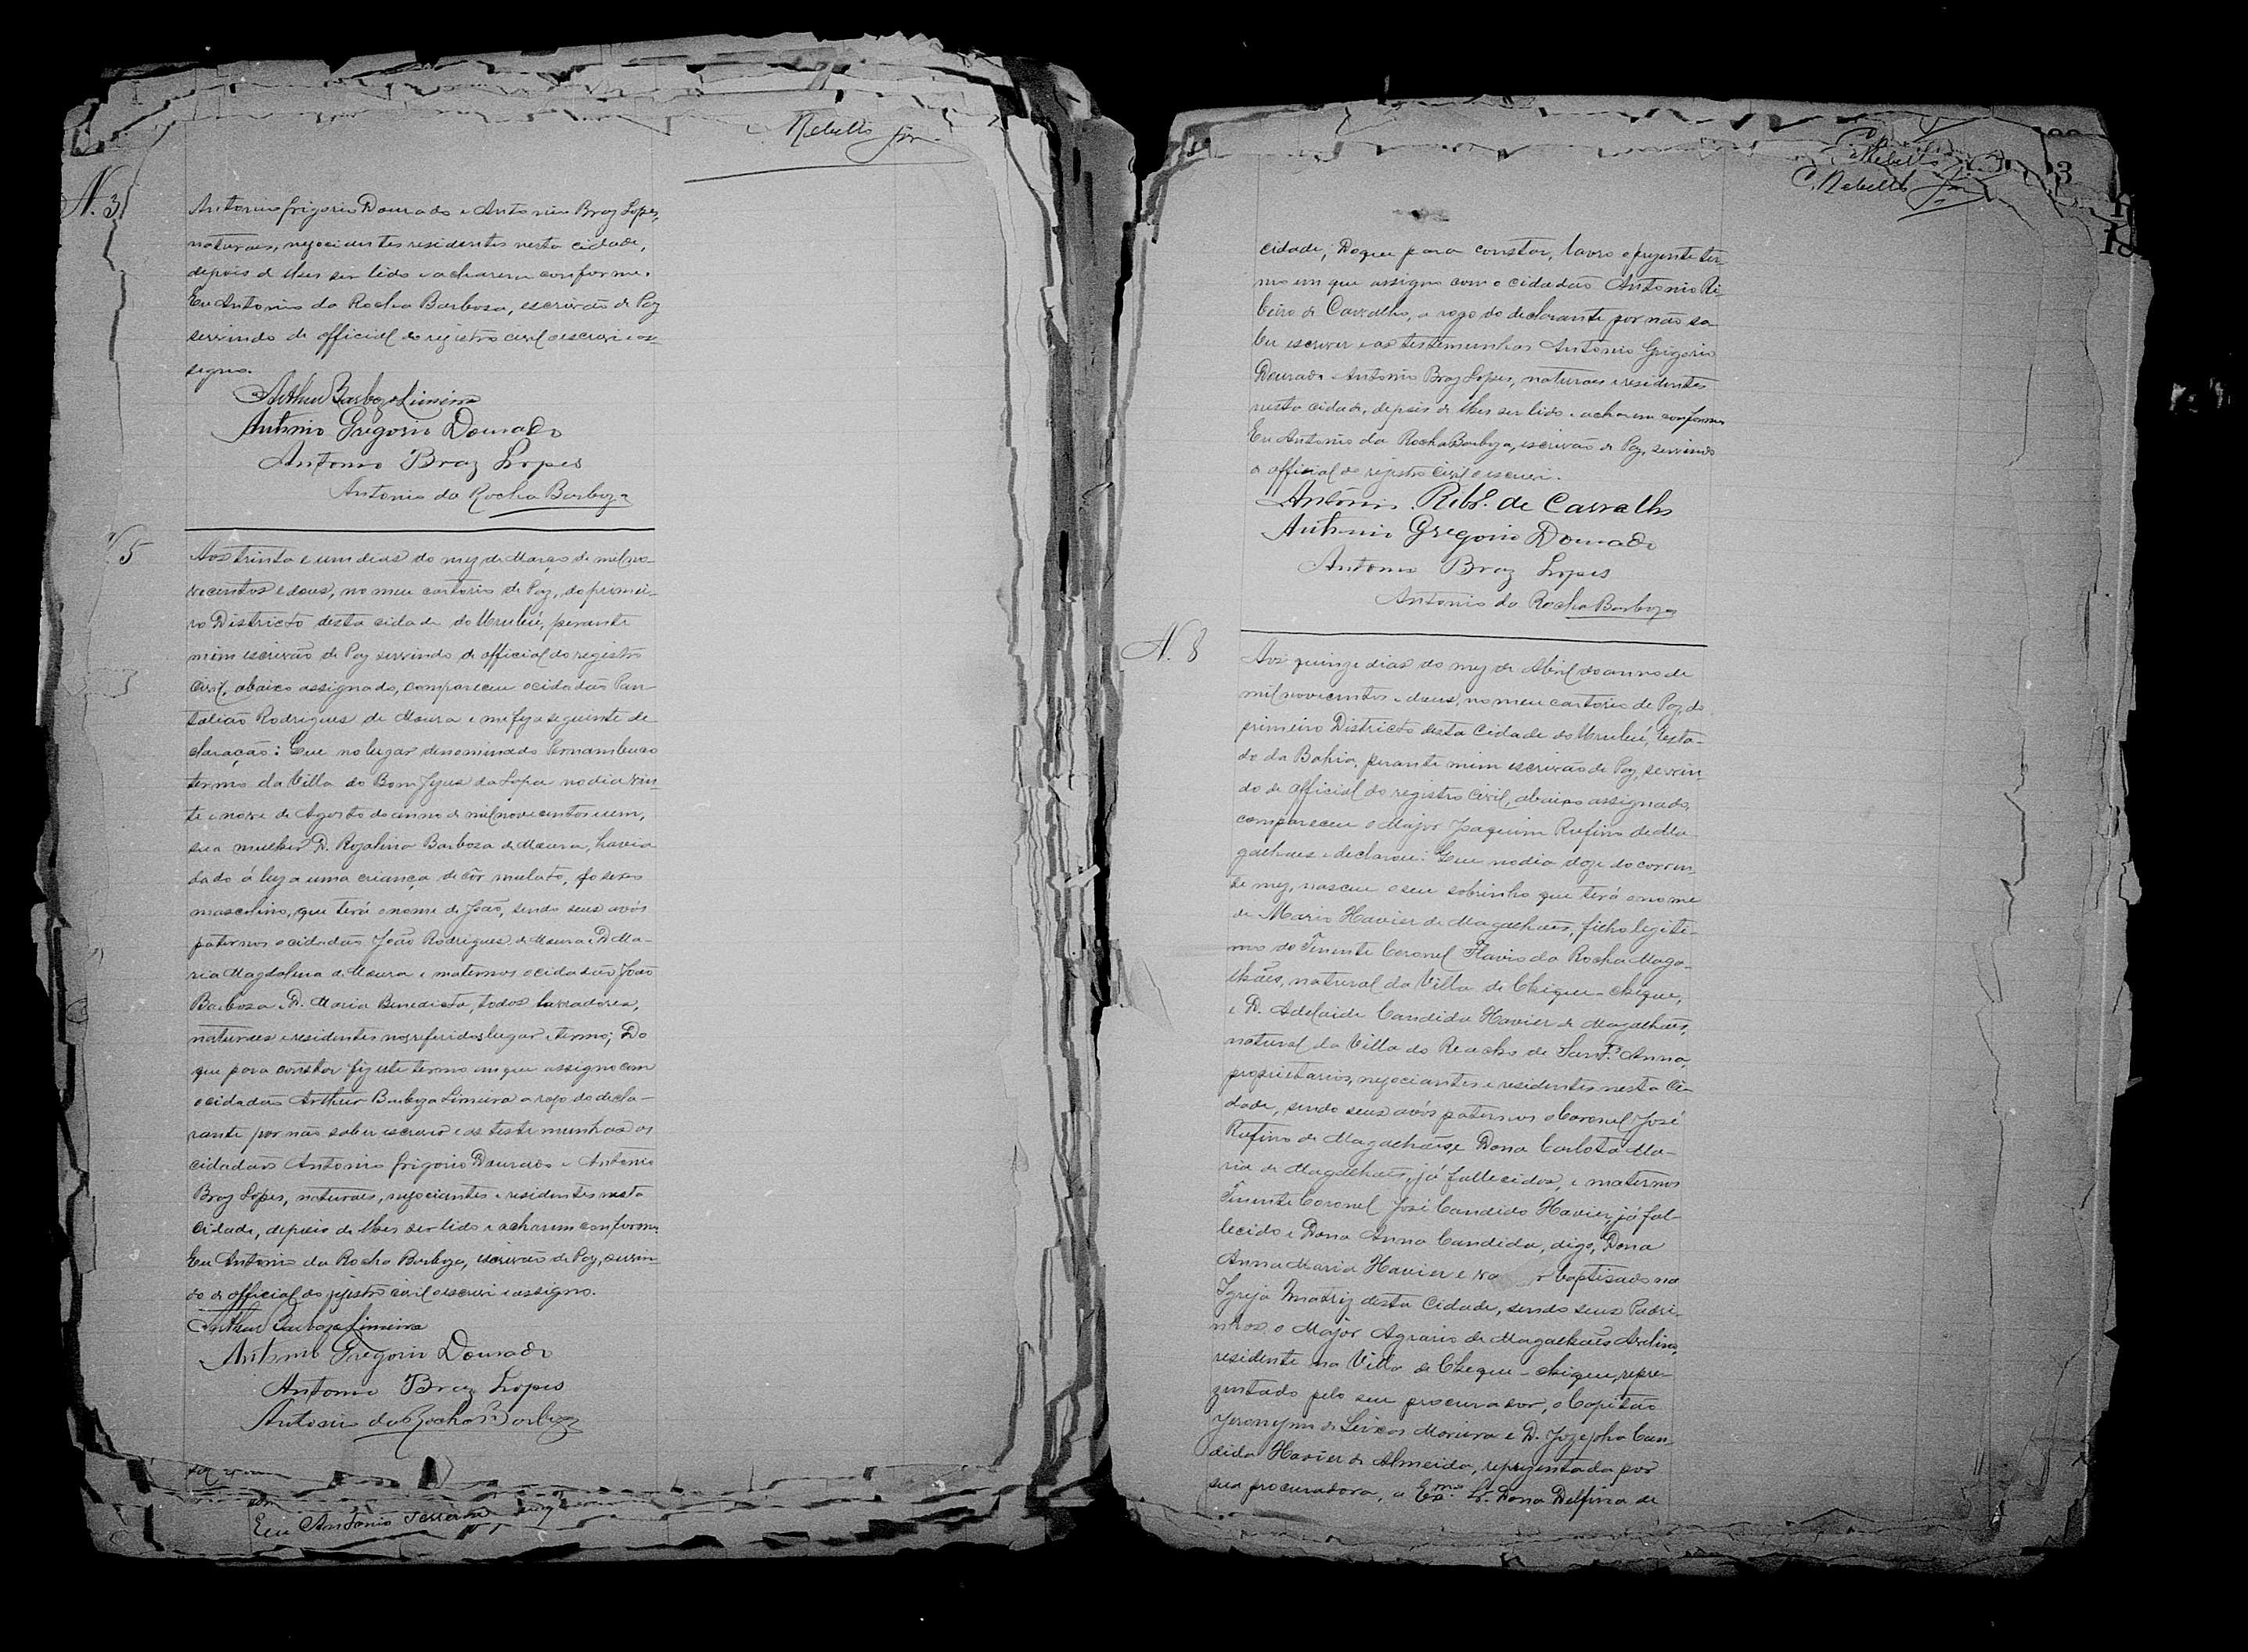 Rebello Jor
N. 3
Antonio Grigorio Dourado e Antonio Braz Lopes,
naturaes, negociantes residentes nesta cidade,
depois de lhes ser lido e acharem conforme.
Eu Antonio da Rocha Barbosa, escrivão de Paz
servindo de official do registro civil o escrevi e as-
signo.
Arthur Barboza Limeira
Antonio Gregorio Dourado
Antonio Braz Lopes
Antonio da Rocha Barboza
5
Aos trinta e um dias do mez de Março de mil no-
vecentos e dous, no meu cartorio de Paz, do primei-
ro Districto desta cidade do Urubú, perante
mim escrivão de Paz servindo de official do registro
Civil, abaixo assignado, compareceu o cidadão Pan-
talião Rodrigues de Moura e me fez a seguinte de-
claração: Que no lugar denominado Pernambuco
termo da Villa do Bom Jesus da Lapa no dia vin-
te e nove de Agosto do anno de mil novecentos e um,
sua mulher D. Rozalina Barbosa de Moura, havia
dado á luz a uma criança de côr mulato, do sexo
masculino, que terá o nome de João, sendo seus avós
paternos o cidadão João Rodrigues de Moura e D. Ma-
ria Magdalena de Moura e maternos o cidadão João
Barbosa e D. Maria Benedicta, todos lavradores,
naturaes e residentes nos referidos lugar e termo; Do
que para constar fiz este termo em que assigno com
o cidadão Arthur Barboza Limeira a rogo do decla-
rante por não saber escrever e as testemunhas os
cidadãos Antonio Grigorio Dourado e Antonio
Braz Lopes, naturaes, negociantes e residentes nesta
cidade, depois de lhes ser lido e acharem conforme.
Eu Antonio da Rocha Barboza, escrivão de Paz, servin-
do de official do registro civil o escrevi e assigno.
Arthur Barboza Limeira
Antonio Gregorio Dourado
Antonio Braz Lopes
Antonio da Rocha Barboza
Eu Antonio
Rebello
C. Rebello Jor
3
cidade, Do que para constar, lavro o prezente ter-
mo em que assigno com o cidadão Antonio Ri-
beiro de Carvalho, a rogo do declarante por não sa-
ber escrever e as testemunhas Antonio Grigorio
Dourado e Antonio Braz Lopes, naturaes e residentes
nesta cidade, depois de lhes ser lido e acharem conforme
Eu Antonio da Rocha Barboza, escrivão de Paz, servindo
o official do registro Civil o escrevi.
Antônio Ribro. de Carvalho
Antonio Gregorio Dourado
Antonio Braz Lopes
Antonio da Rocha Barboza
N. 8
Aos quinze dias do mez de Abril do anno de
mil novecentos e dous, no meu cartorio de Paz, do
primeiro Districto desta Cidade do Urubú, Esta-
do da Bahia, perante mim escrivão de Paz, servin-
do de official do registro Civil, abaixo assignado,
compareceu o Major Joaquim Rufino de Ma-
galhaes e declarou: Que no dia doze do corren-
te mez, nasceu o seu sobrinho que terá o nome
de Mario Xavier de Magalhães, filho legiti-
mo do Tenente Coronel Flavio da Rocha Maga-
lhães, natural da Villa de Chique-chique,
e D. Adelaide Candida Xavier de Magalhães,
natural da Villa do Reacho de Sant'Anna,
proprietarios, negociantes e residentes nesta Ci-
dade, sendo seus avós paternos o Coronel José
Rufino de Magalhães e Dona Carlota Ma-
ria de Magalhães, já fallecidos, e maternos
Tenente Coronel José Candido Xavier, já fal-
lecido e Dona Anna Candida, digo, Dona
Anna Maria Xavier e baptisado na
Igreja Matriz desta Cidade, sendo seus Padri-
nhos o Major Agrario de Magalhães Avelino,
residente na Villa de Chique-chique, repre-
zentado pelo seu procurador, o Capitão
Jeronymo de Seixas Moreira e D. Jozepha Can-
dida Xavier de Almeida, reprezentada por
sua procuradora, a Exma. Sr. Dona Delfina de